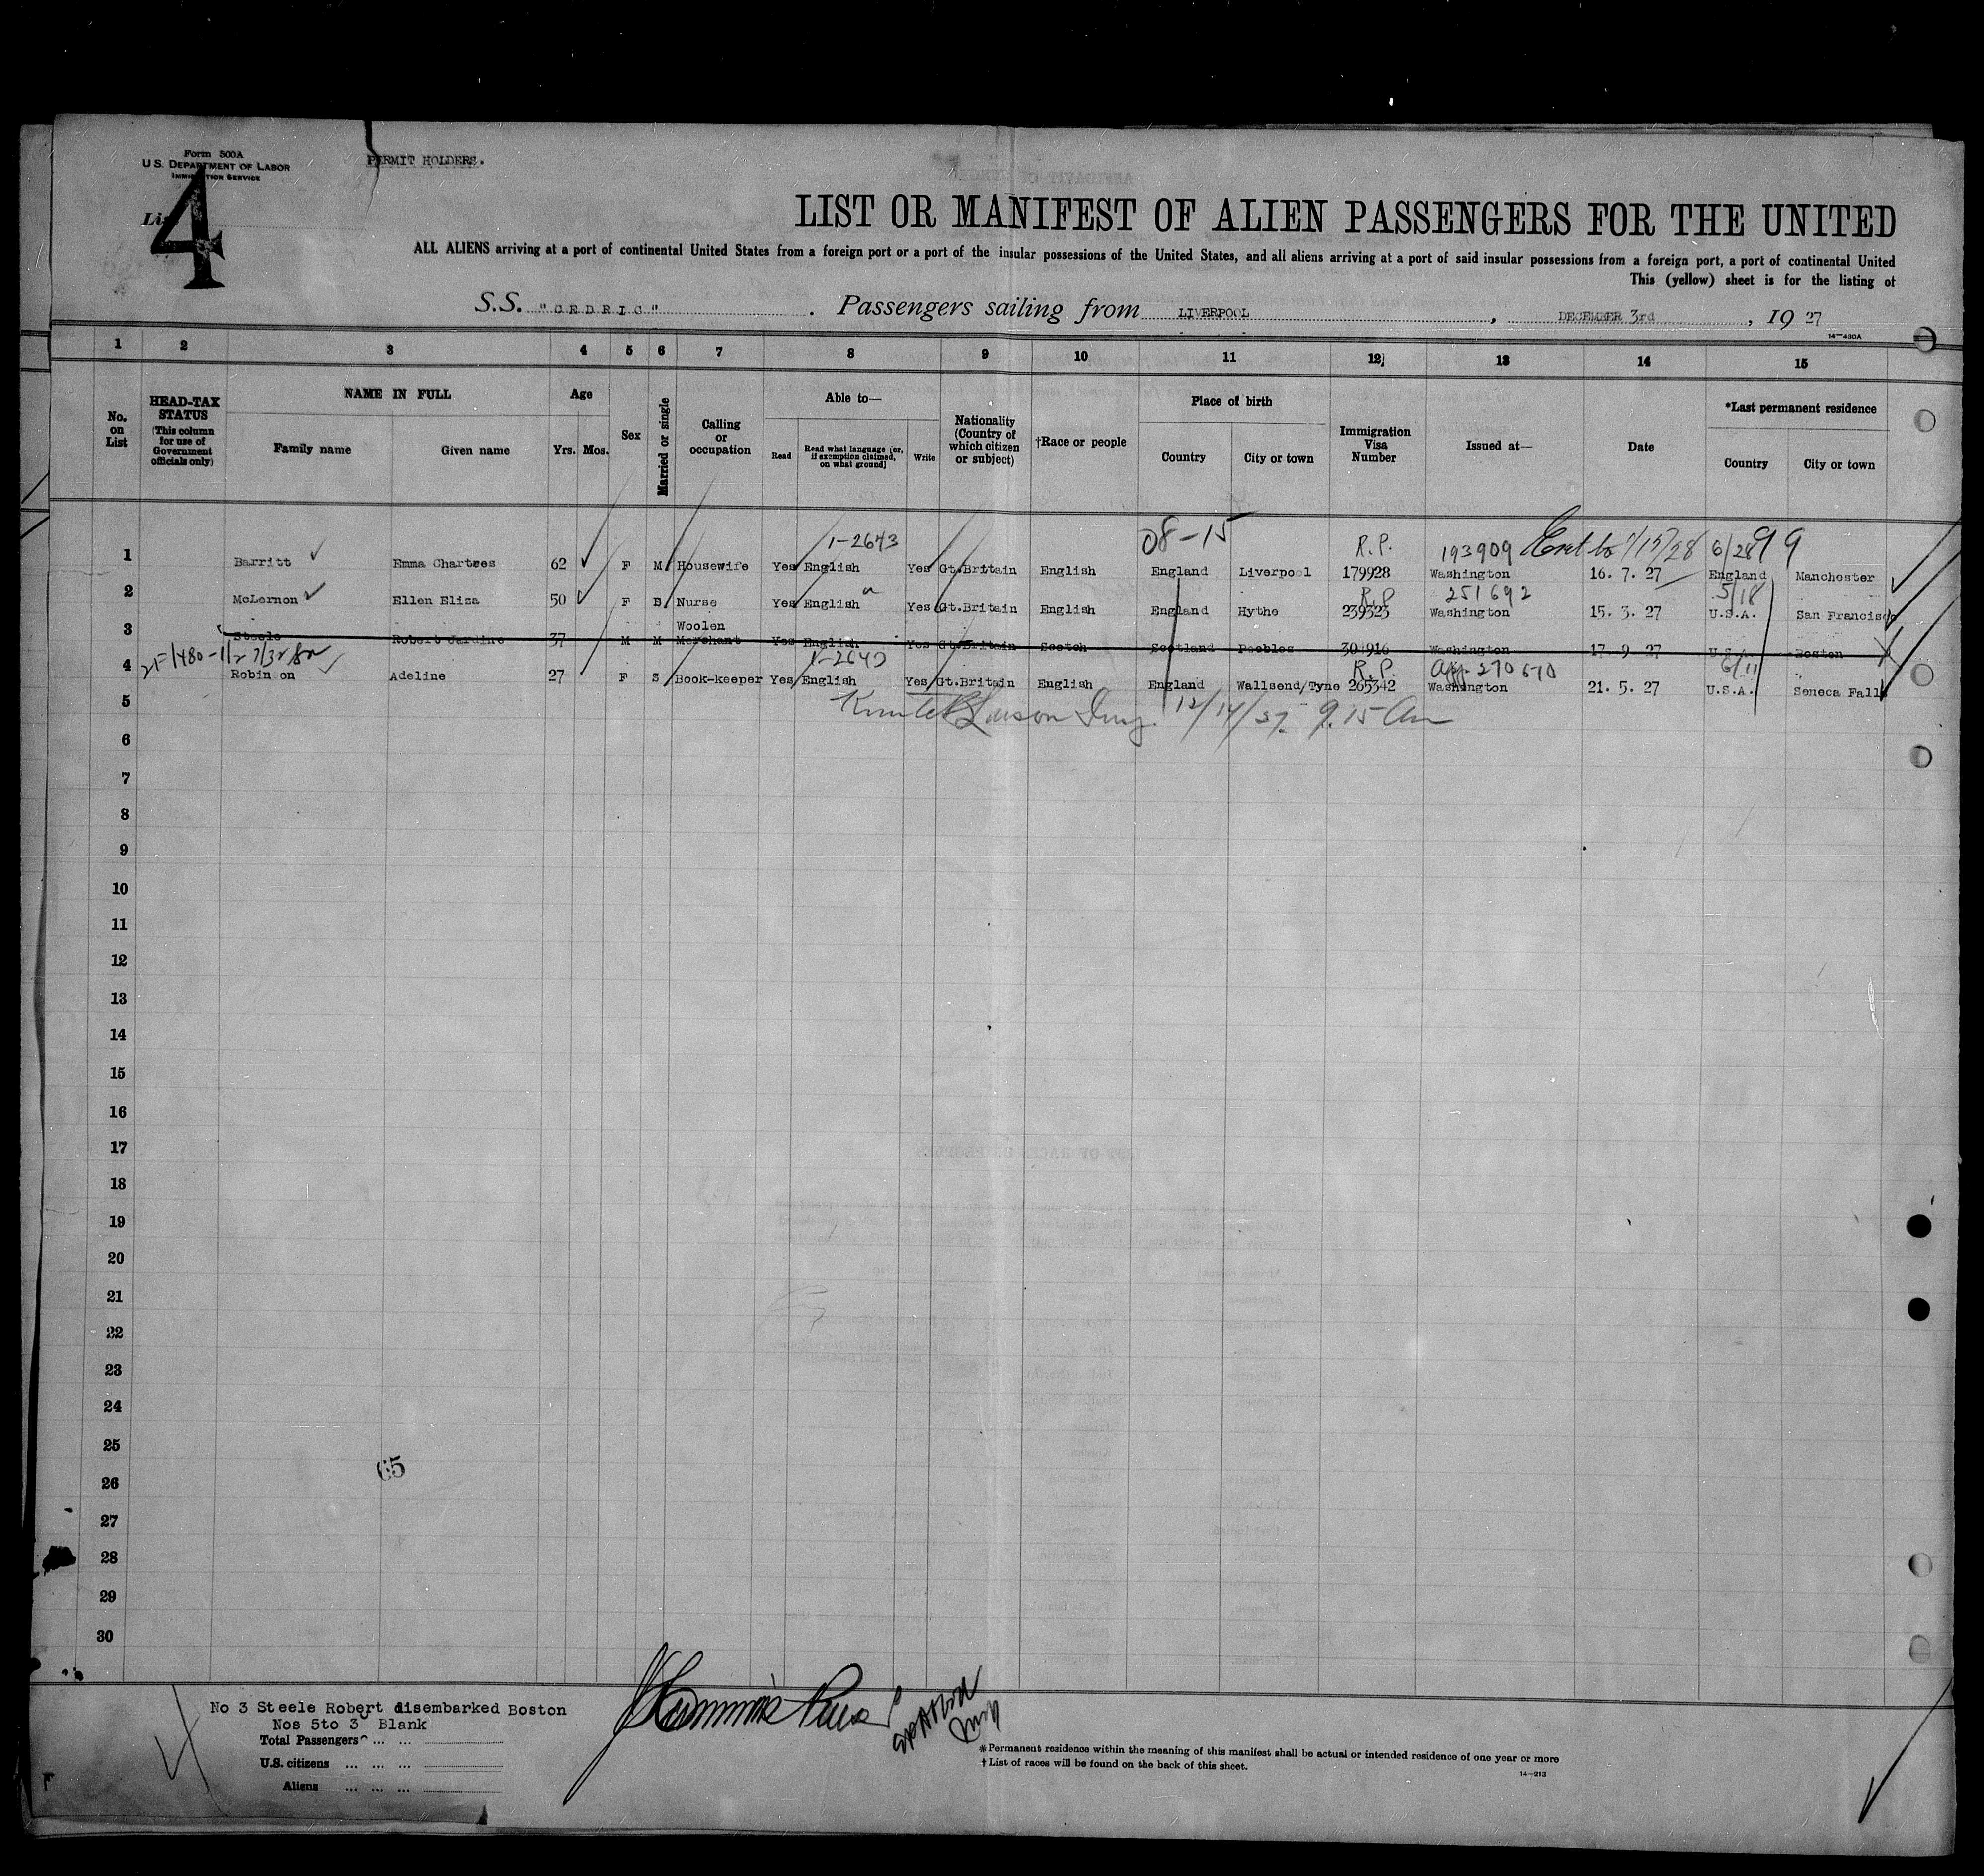 Form 500A
U.S. DEPARTMENT OF LABOR
IMMIGRATION SERVICE
PERMIT HOLDERS.
4
LIST OR MANIFEST OF ALIEN PASSENGERS FOR THE UNITED
ALL ALIENS arriving at a port of continental United States from a foreign port or a port of the insular possessions of the United States, and all aliens arriving at a port of said insular possessions from a foreign port, a port of continental United
This (yellow) sheet is for the listing of
S.S. "CEDRIC" . Passengers sailing from LIVERPOOL , DECEMBER 3rd , 19 27
14—430A
1 2 3 4 5 6 7 8 9 10 11 12 13 14 15
No. on List
HEAD-TAX STATUS (This column for use of Government officials only)
NAME IN FULL
Family name Given name
Age
Yrs. Mos.
Sex
Married or single
Calling or occupation
Able to—
Read Read what language [or, if exemption claimed, on what ground] Write
Nationality (Country of which citizen or subject)
†Race or people
Place of birth
Country City or town
Immigration Visa Number
Issued at—
Date
*Last permanent residence
Country City or town
1-2643 08-15 R.P. 193909 6/28 99
1 Barritt Emma Chartres 62 F M Housewife Yes English Yes Gt.Britain English England Liverpool 179928 Washington 16. 7. 27 England Manchester
R.P 251692 5/18
2 McLernon Ellen Eliza 50 F Nurse Yes English Yes Gt.Britain English England Hythe 239323 Washington 15. 3. 27 U.S.A. San Francisco
Woolen
3 Steele Robert Jardine 37 M M Merchant Yes English Yes Gt.Britain Scotch Scotland Peebles 301916 Washington 17 9 27 U.S.A. Boston
1-2643 R.P. 270670 6/11
4 Robin on Adeline 27 F S Book-keeper Yes English Yes Gt.Britain English England Wallsend/Tyne 265342 Washington 21. 5. 27 U.S.A. Seneca Falls
12/14/27. 9.15 Am
5
6
7
8
9
10
11
12
13
14
15
16
17
18
19
20
21
22
23
24
25
65
26
27
28
29
30
No 3 Steele Robert disembarked Boston
Nos 5to 3 Blank
Total Passengers ... ...
U.S. citizens ... ... ...
Aliens ... ... ...
*Permanent residence within the meaning of this manifest shall be actual or intended residence of one year or more
†List of races will be found on the back of this sheet.
14—213